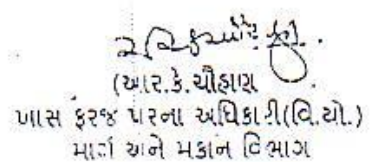 (આર.કે.ચૌહાણ
ખાસ ફરજ પરના અધિકારી(વિ.યો.)
માર્ગ અને મકાન વિભાગ